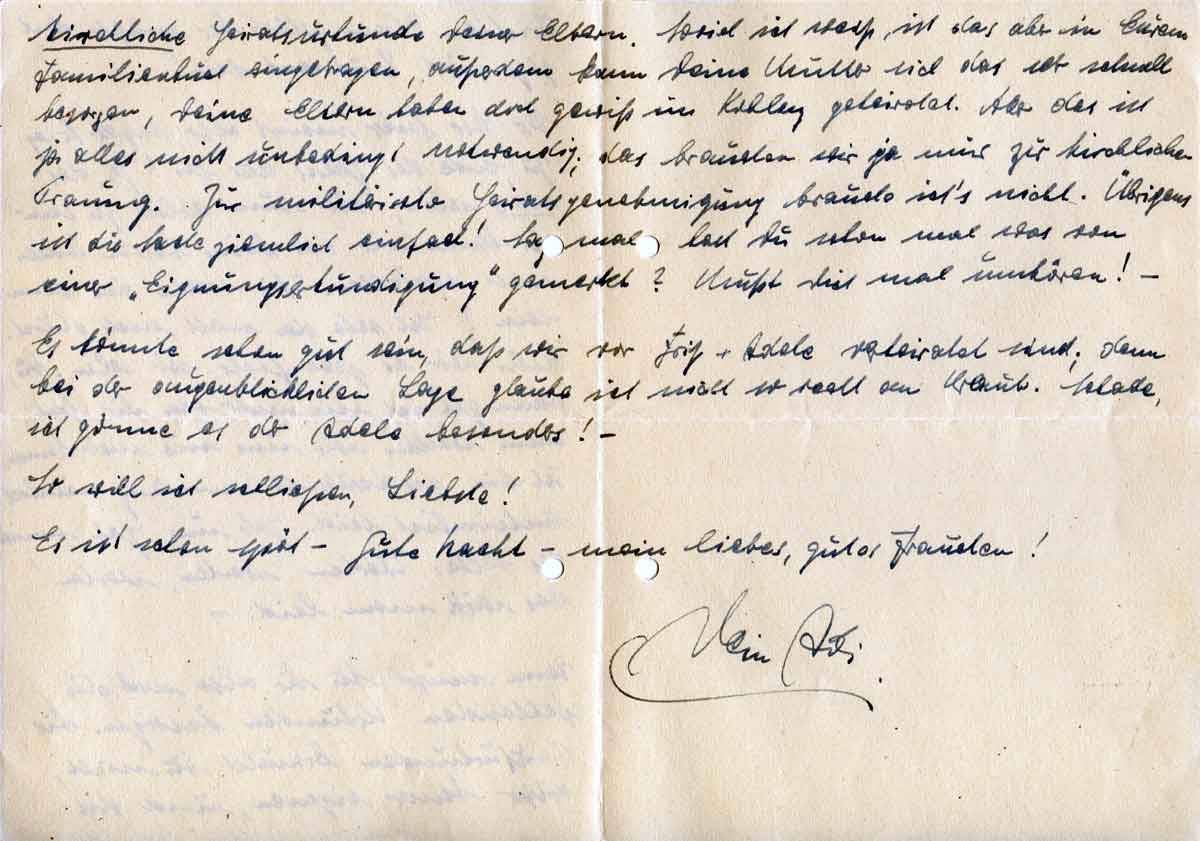 kirchliche Heiratsurkunde Deiner Eltern. Soviel ich weiß, ist das aber in Eurem
Familienbuch eingetragen, außerdem kann Deine Mutter sich das sehr schnell
besorgen, Deine Eltern haben doch gewiß in Koblenz geheiratet. Aber das ist
ja alles nicht unbedingt notwendig, das brauchen wir ja nur zur kirchlichen
Trauung. Zur militärischen Heiratsgenehmigung brauche ich's nicht. Übrigens
ist die Sache ziemlich einfach! Sag mal hast Du schon mal was von
einer „Eignungserkundigung" gemerkt? Mußt Dich mal umhören! –
Es könnte schon gut sein, daß wir vor Fritz + Adele verheiratet sind; denn
bei der augenblicklichen Lage glaube ich nicht so recht an Urlaub. Schade,
ich gönne es der Adele besonders! –
So will ich schließen, Liebste!
Es ist schon spät – Gute Nacht – mein liebes, gutes Frauchen!
Dein Adi.